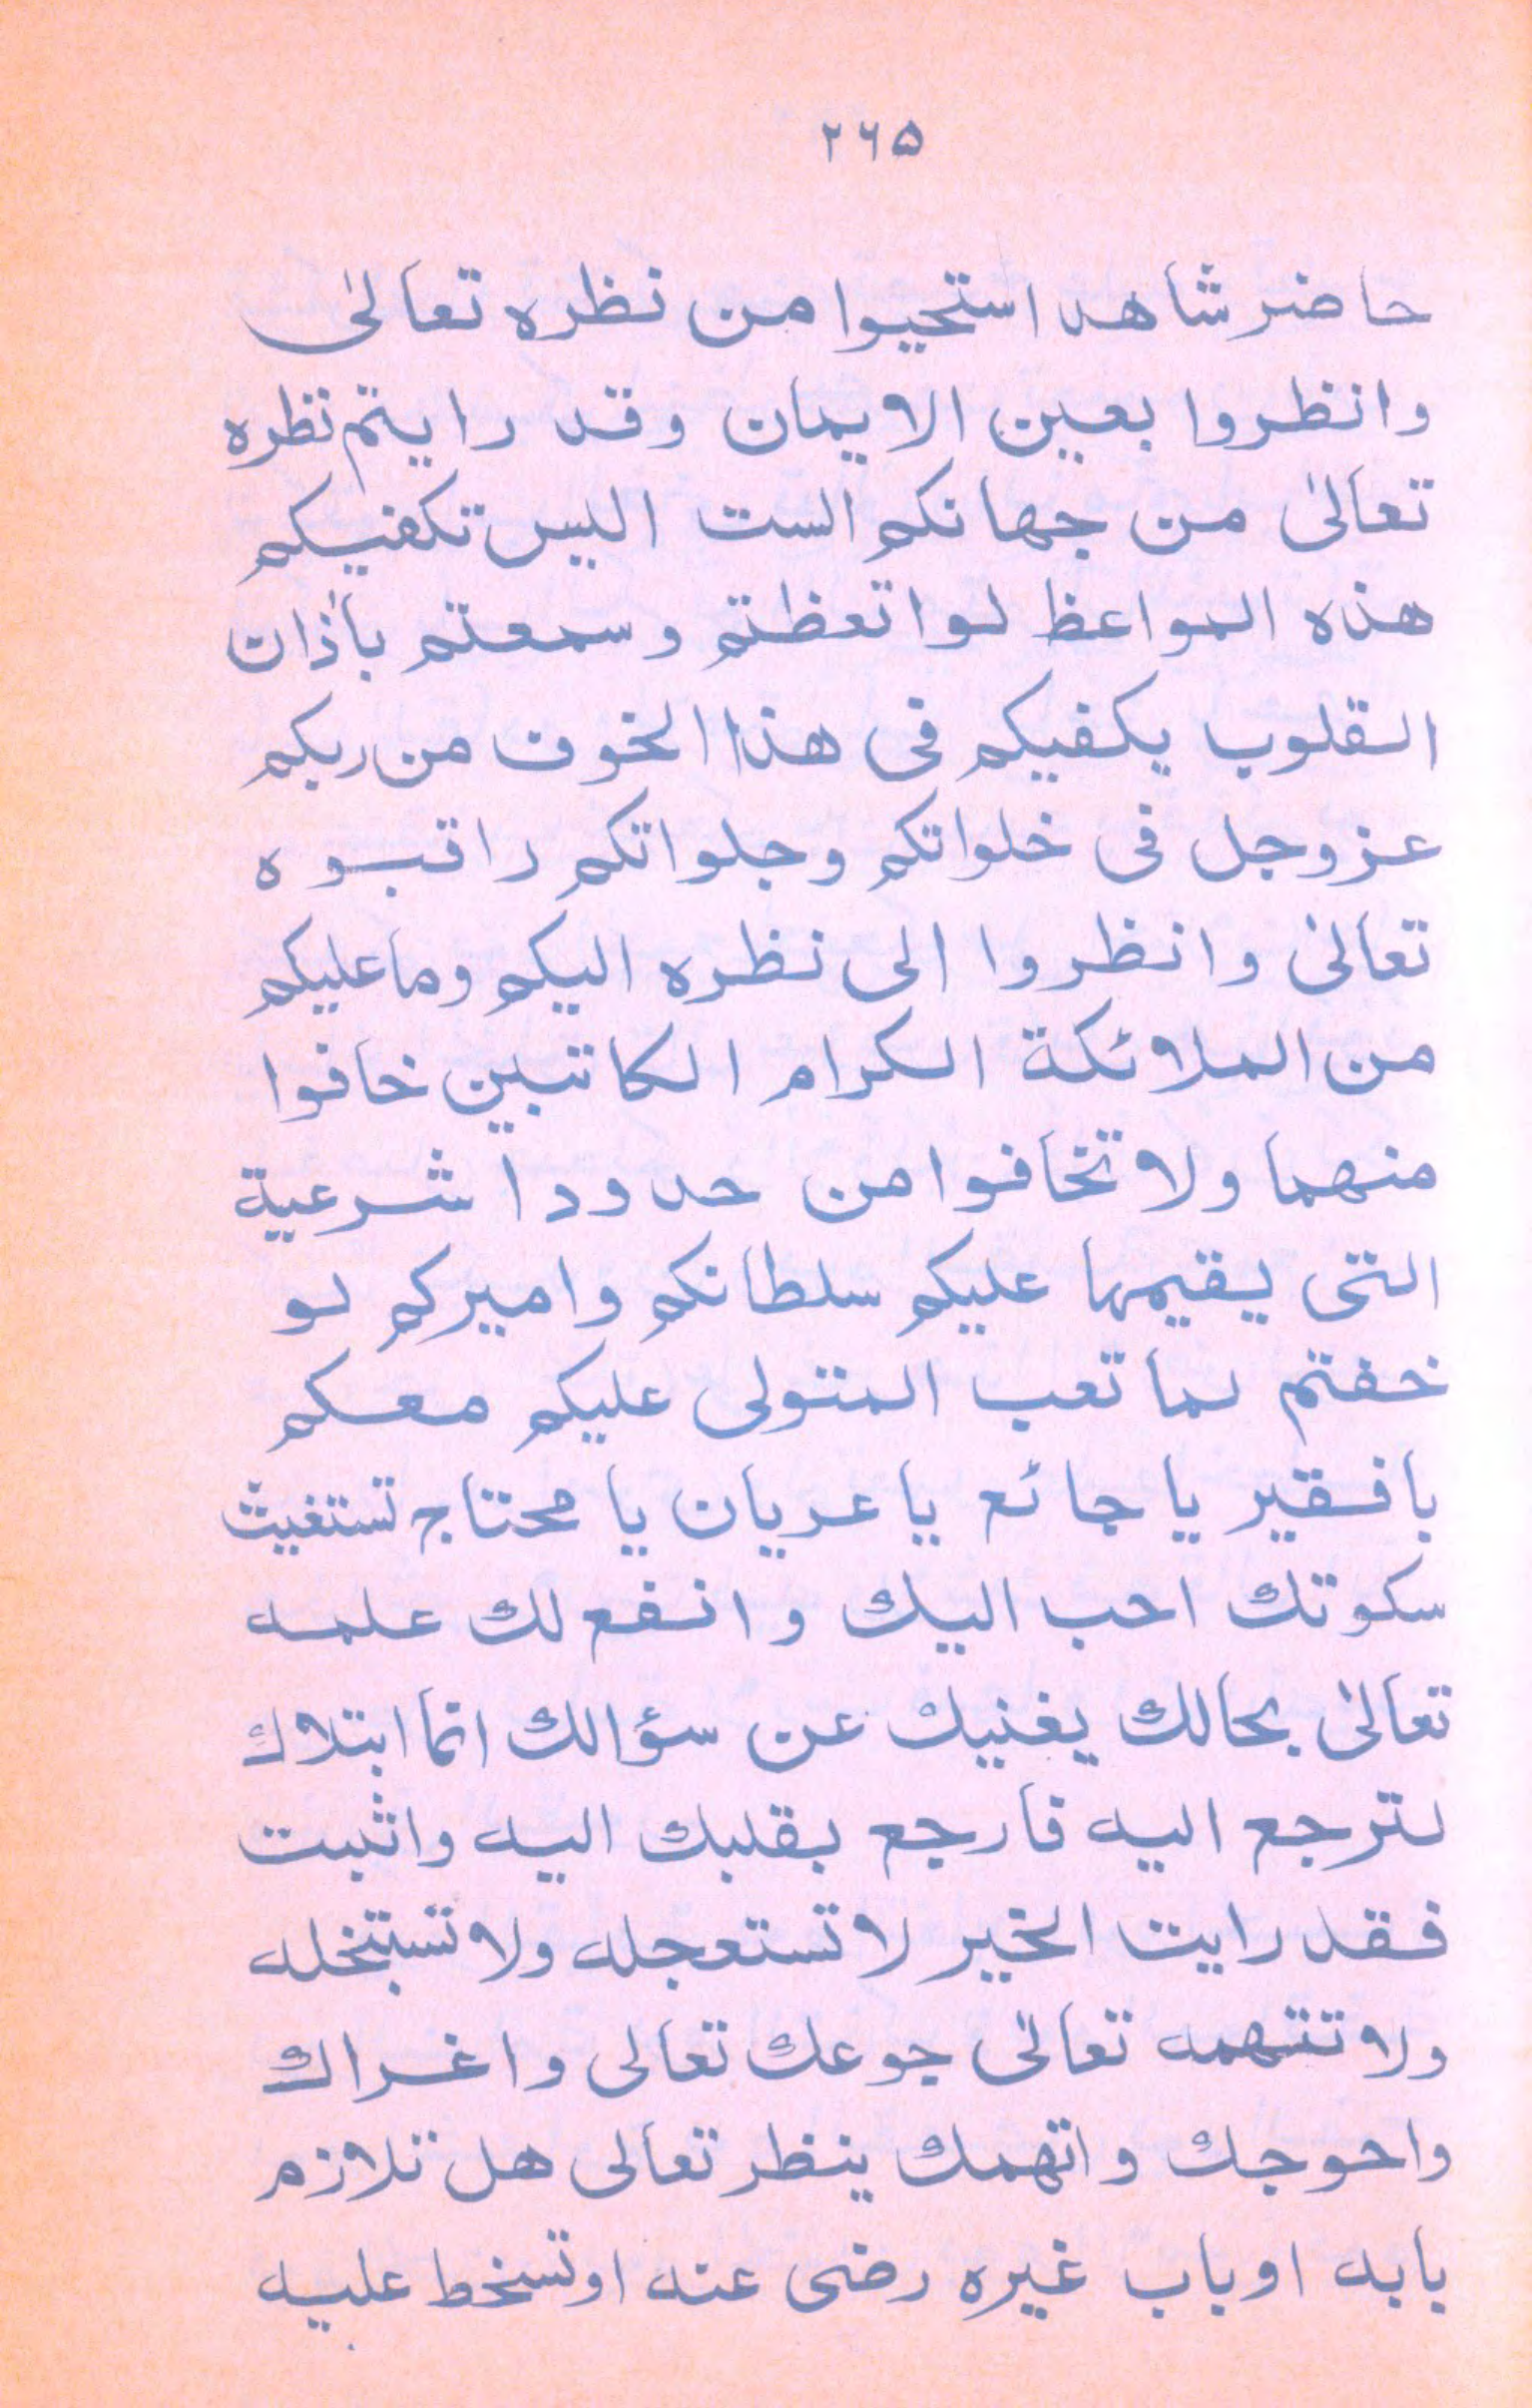 ۲۶۵
حاضر شاهد استحيوا من نظره تعالیٰ
وانظروا بعين الايمان وقد رايتم نظره
تعالیٰ من جهانكم الست اليس تكفيكم
هذه المواعظ لو اتعظتم وسمعتم بأذان
القلوب يكفيكم فی هذا الخوف من ربكم
عز وجل فی خلواتكم وجلواتكم راقبوه
تعالیٰ وانظروا الی نظره اليكم وما عليكم
من الملائكة الكرام الكاتبين خافوا
منهما ولا تخافوا من حدودا شرعية
التی يقيمها عليكم سلطانكم واميركم لو
خفتم لما تعب المتولی عليكم معكم
يا فقير يا جائع يا عريان يا محتاج تستغيث
سكوتك احب اليك وانفع لك علمه
تعالیٰ بحالك يغنيك عن سؤالك انما ابتلاك
لترجع اليه فارجع بقلبك اليه واثبت
فقد رايت الخير لا تستعجله ولا تستبخله
ولا تتهمه تعالیٰ جوعك تعالی واغراك
واحوجك واتهمك ينظر تعالی هل تلازم
بابه او باب غيره رضی عنه او تسخط عليه